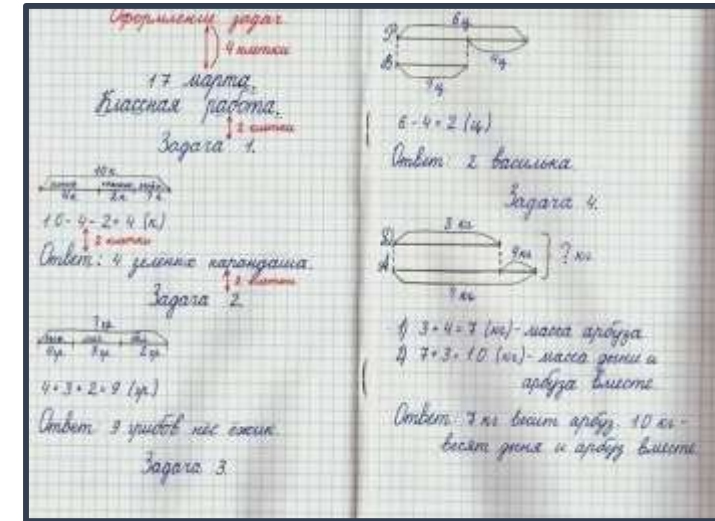 Оформление задач
4 клетки
17 марта.
Классная работа.
2 клетки
Задача 1.
10 к.
4 к. 2 к. ? к.
10 - 4 - 2 = 4 (к)
2 клетки
Ответ: 4 зеленых карандаша.
2 клетки
Задача 2.
? гр.
4 гр. 3 гр. 2 гр.
4 + 3 + 2 = 9 (гр)
Ответ 9 грибов нес ежик.
Задача 3.
6 ц
Р
4 ц
В
? ц
6 - 4 = 2 (ц)
Ответ: 2 василька.
Задача 4.
3 кг
Д
4 кг
? кг
А
? кг
1) 3 + 4 = 7 (кг) - масса арбуза
2) 7 + 3 = 10 (кг) - масса дыни и
арбуза вместе
Ответ: 7 кг весит арбуз. 10 кг -
весят дыня и арбуз вместе.